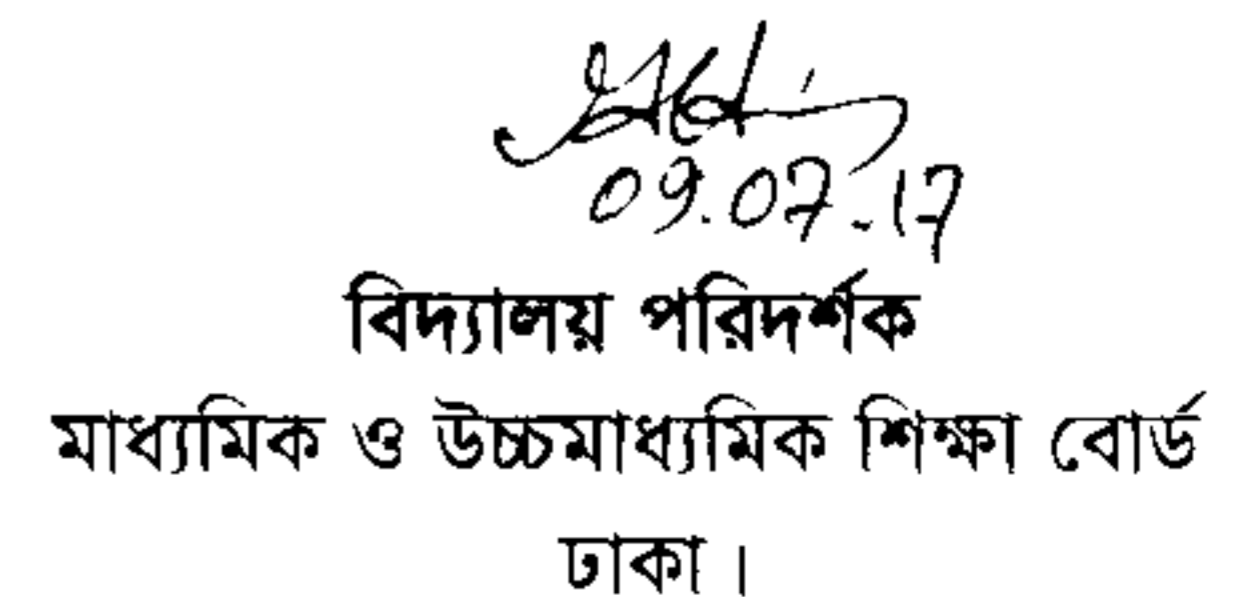 09.07.17
বিদ্যালয় পরিদর্শক
মাধ্যমিক ও উচ্চমাধ্যমিক শিক্ষা বোর্ড
ঢাকা।